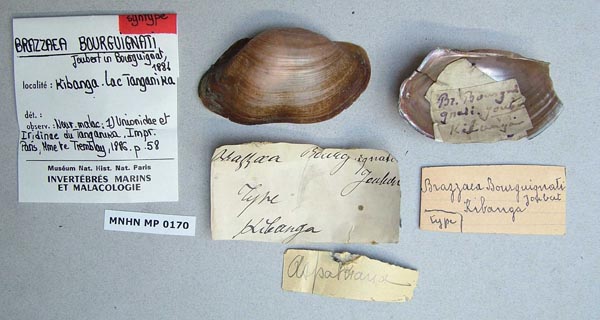 syntype
BRAZZAEA BOURGUIGNATI
Joubert in Bourguignat,
1886
localité : Kibanga. Lac Tanganika
dét. :
observ. : Nouv. malac. 1) Unionidae et
Iridinae du Tanganika. Impr.
Paris, Mme Ve Tremblay, 1886. p. 58
Muséum Nat. Hist. Nat. Paris
INVERTÉBRÉS MARINS
ET MALACOLOGIE
MNHN MP 0170
Br. Bourgui
gnati Joub
Kibanga
Brazzaea Bourguignati
Joubert
Type
Kibanga
Brazzaea Bourguignati
Joubert
Kibanga
Type